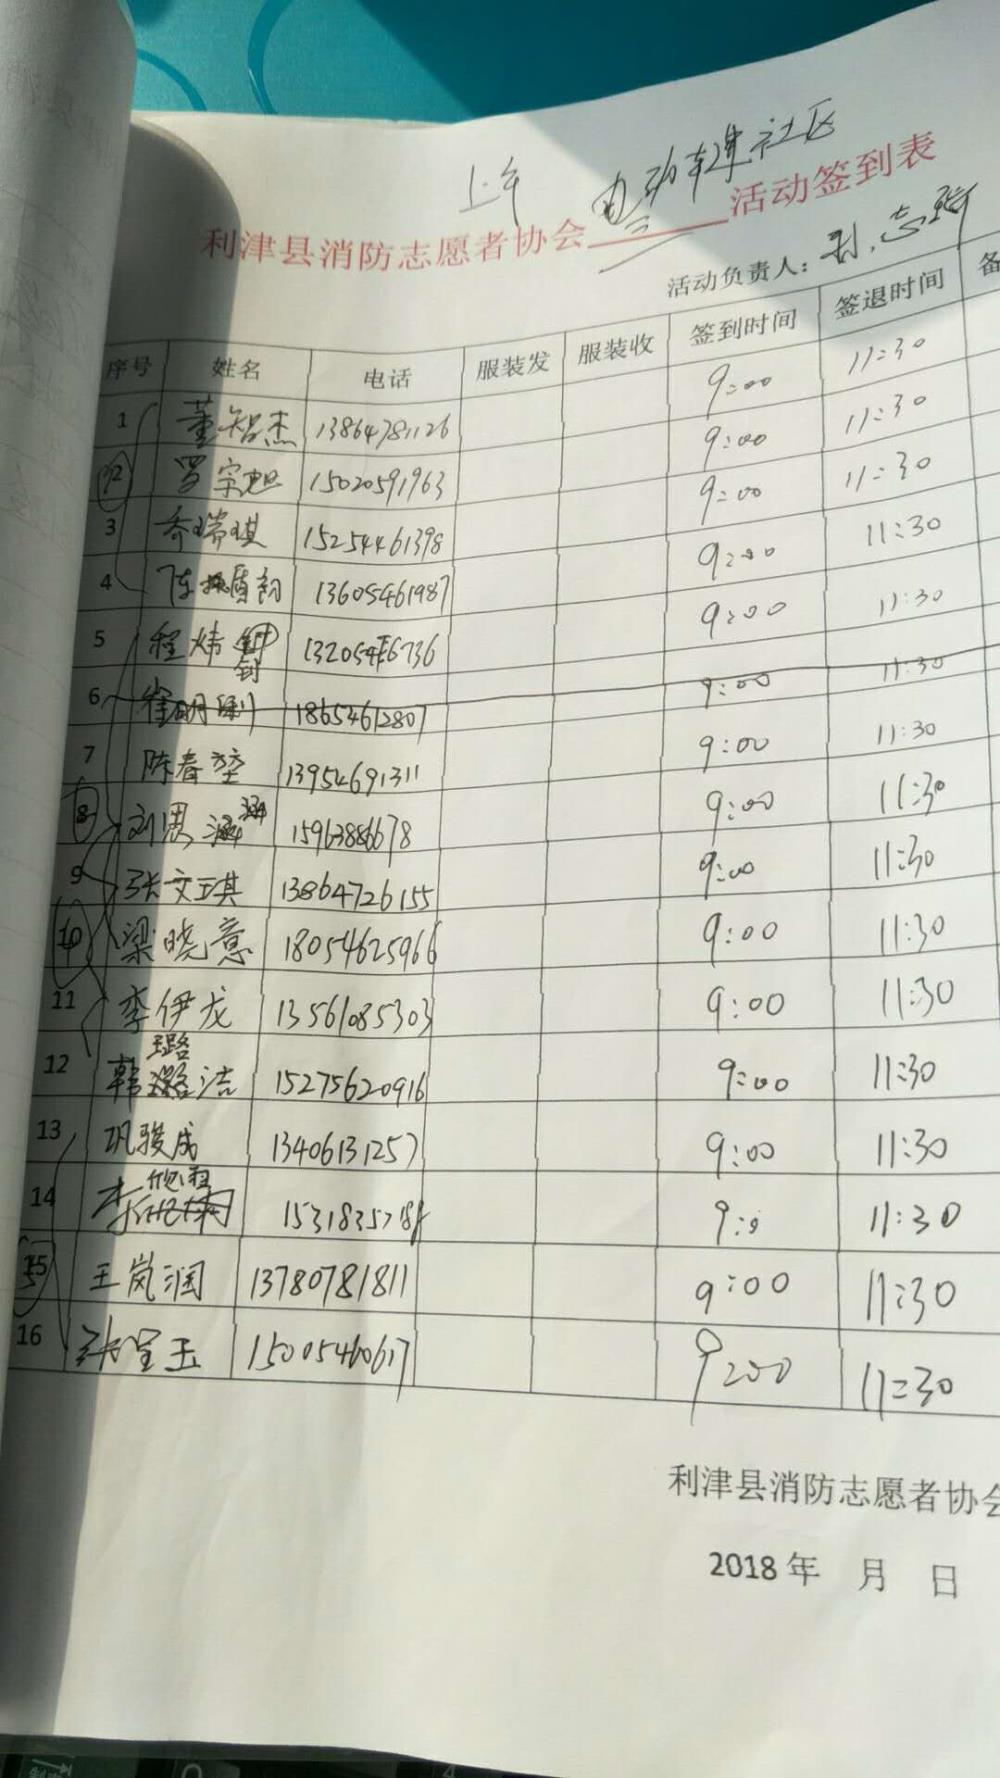 上午 电动车 社区
利津县消防志愿者协会 活动签到表
活动负责人：
序号 姓名 电话 服装发 服装收 签到时间 签退时间 备
1 董智杰 13864781126 9:00 11:30
2 罗宗旭 15020591963 9:00 11:30
3 乔瑞琪 15254461398 9:00 11:30
4 陈 13605461987 9:00 11:30
5 程炜钊 9:00 11:30
6 崔明 18654612807 9:00 11:30
7 陈春堃 13954691311 9:00 11:30
8 刘思涵 15963886678 9:00 11:30
9 张文琪 13864726155 9:00 11:30
10 梁晓意 18054625966 9:00 11:30
11 李伊龙 13561085303 9:00 11:30
12 韩璐洁 15275620916 9:00 11:30
13 巩骏成 13406131257 9:00 11:30
14 李 11:30
15 王岚润 13780781811 9:00 11:30
16 张宝玉 15005460617 9:00 11:30
利津县消防志愿者协会
2018 年 月 日